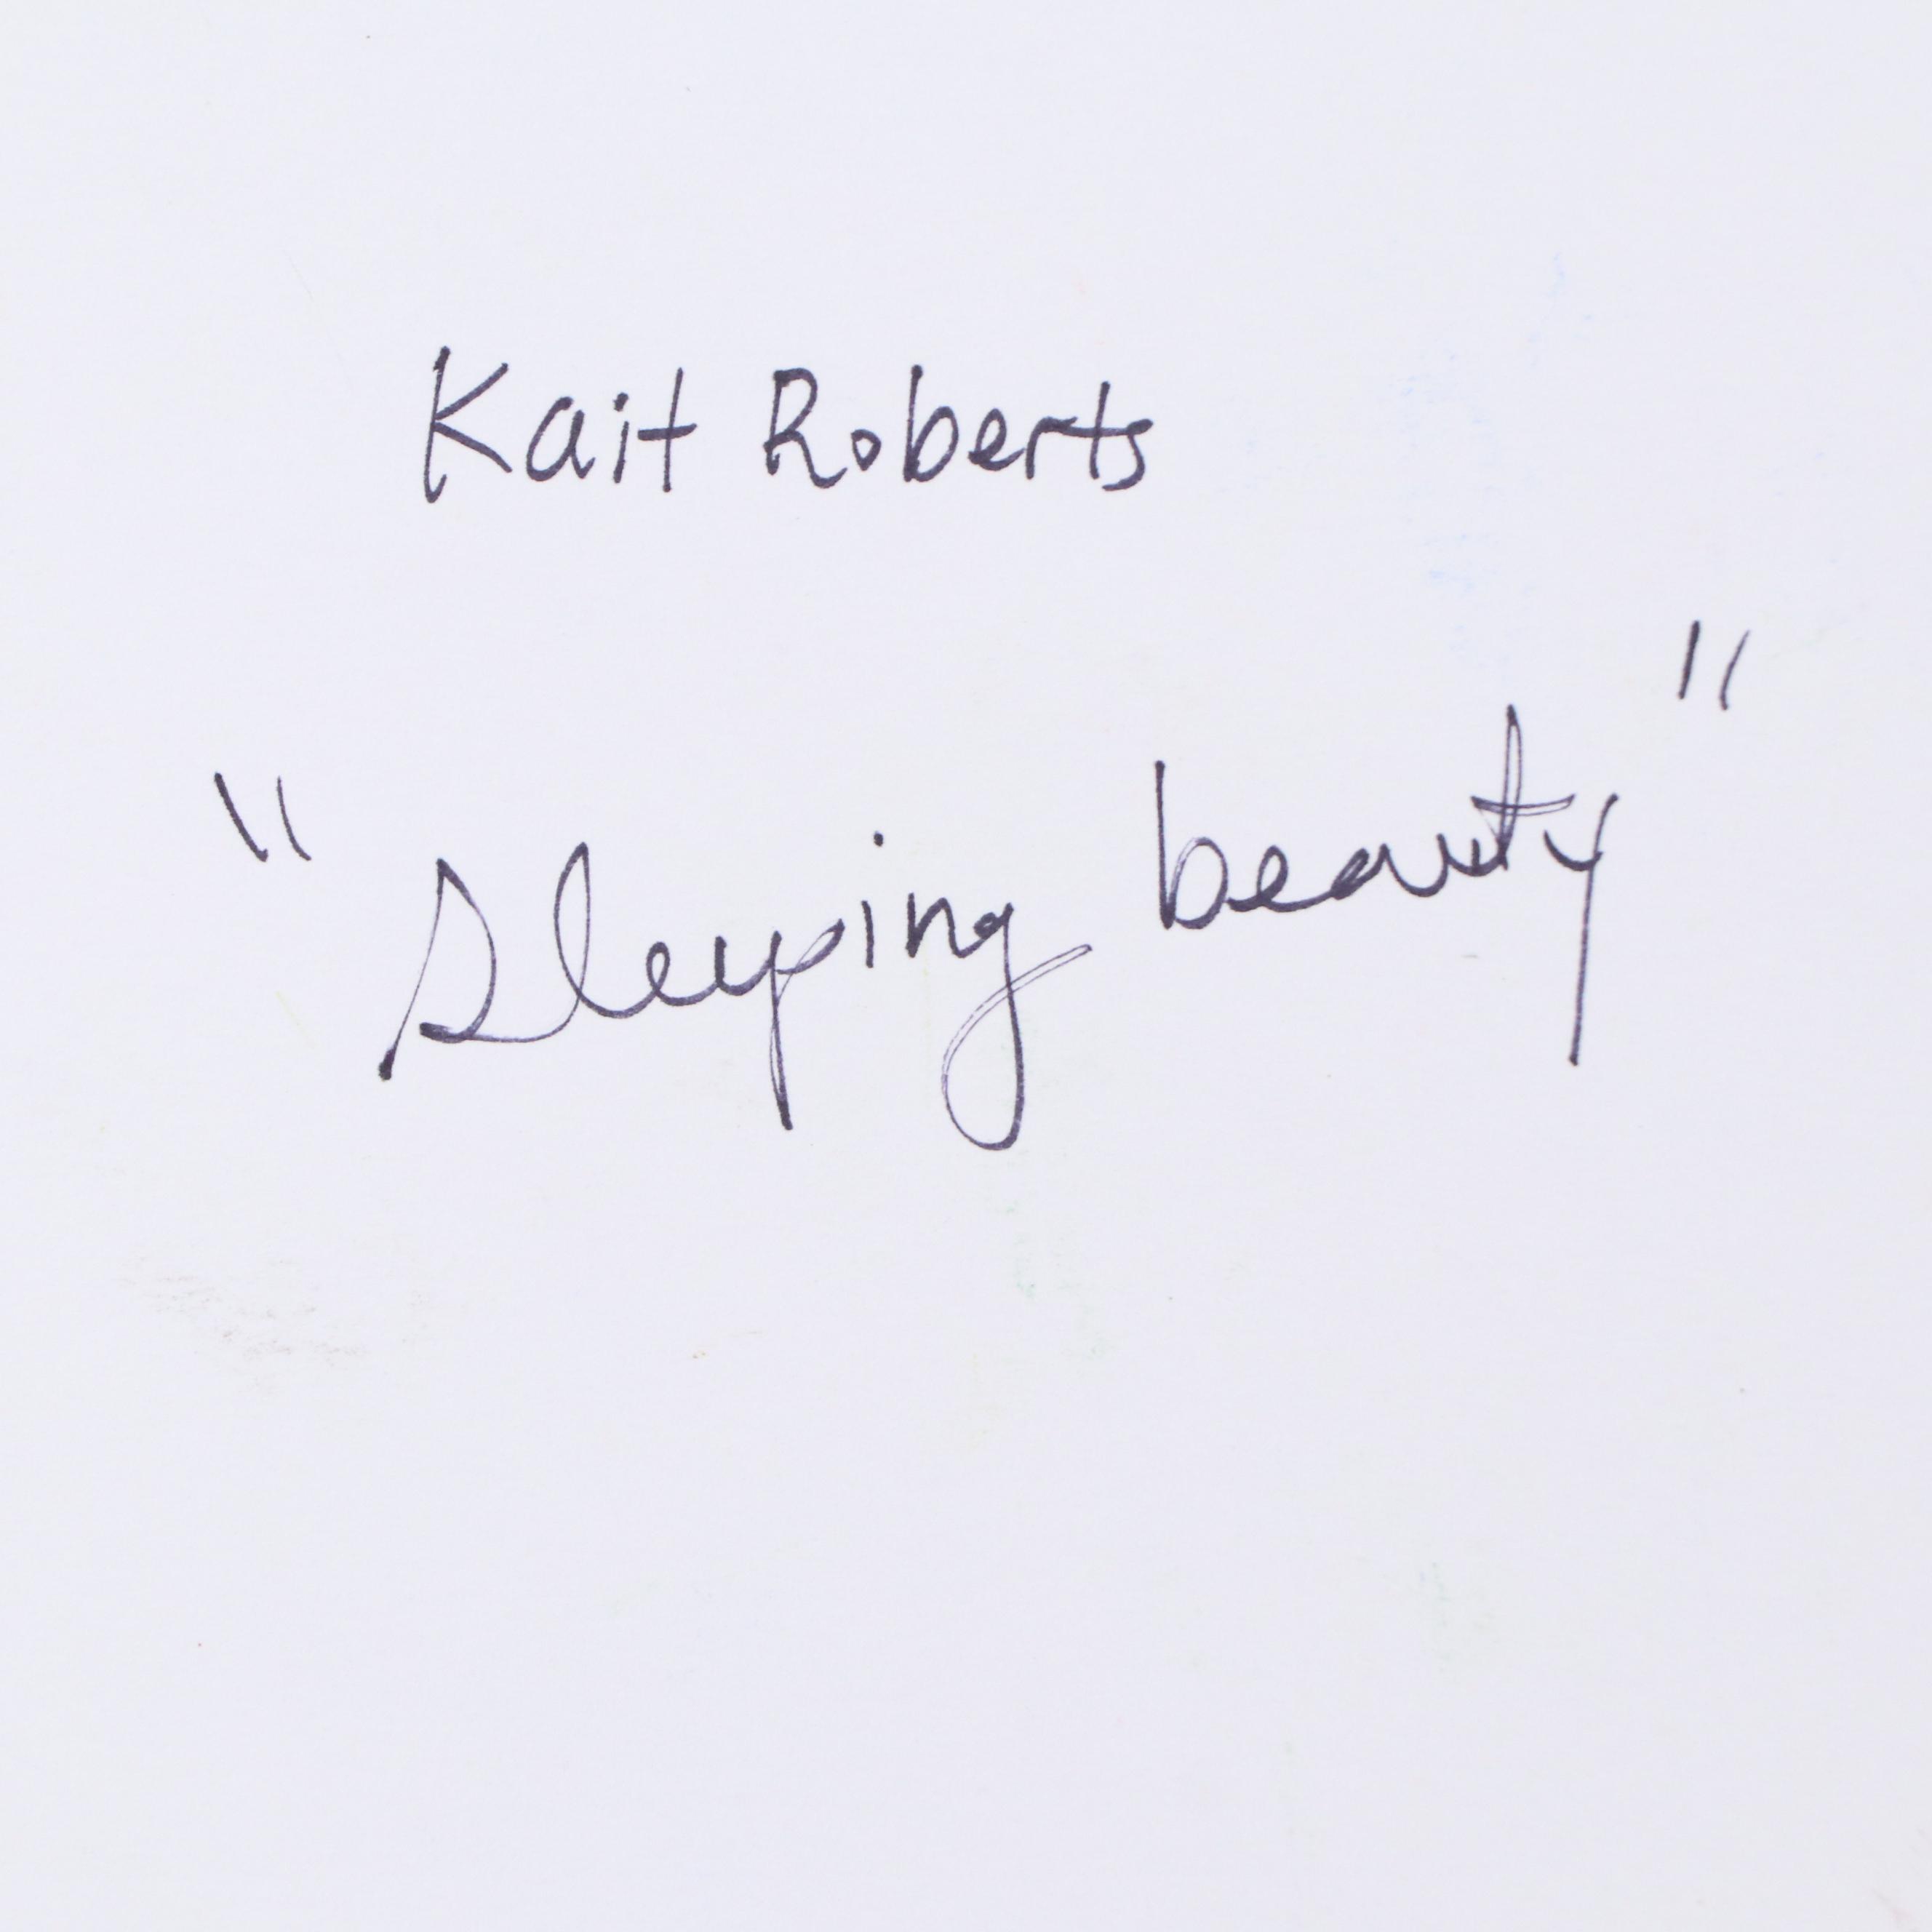 Kait Roberts
"Sleeping beauty"